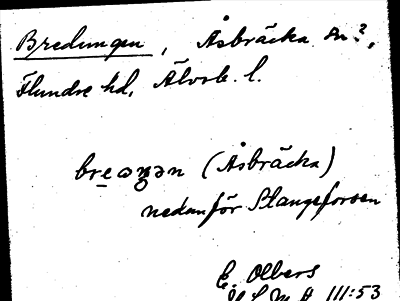 Bredungen, Åsbräcka sn?,
Flundre hd, Älvsb. l.
(Åsbräcka)
nedanför Slangeforsen
E. Olbers
III:53